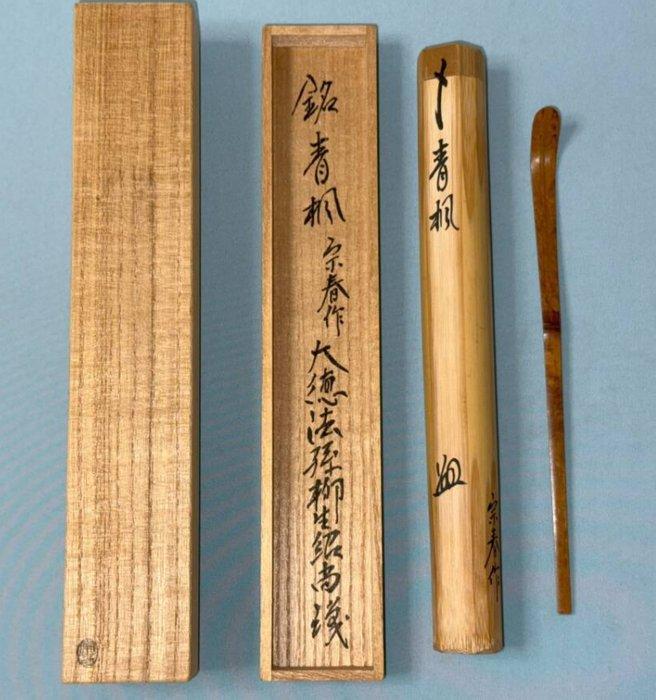 銘 青楓 宗春作 大徳法孫柳生紹尚識
〆 青楓
宗春作